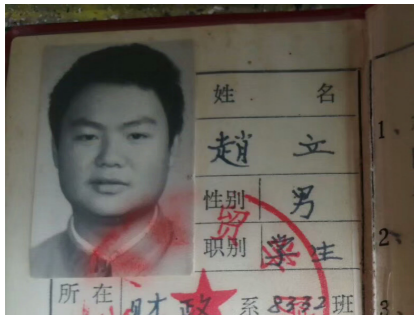 姓 名
趙 立
性别 男
职别 学生
所在 财政 系 8332 班
贸
1、
2、
3、